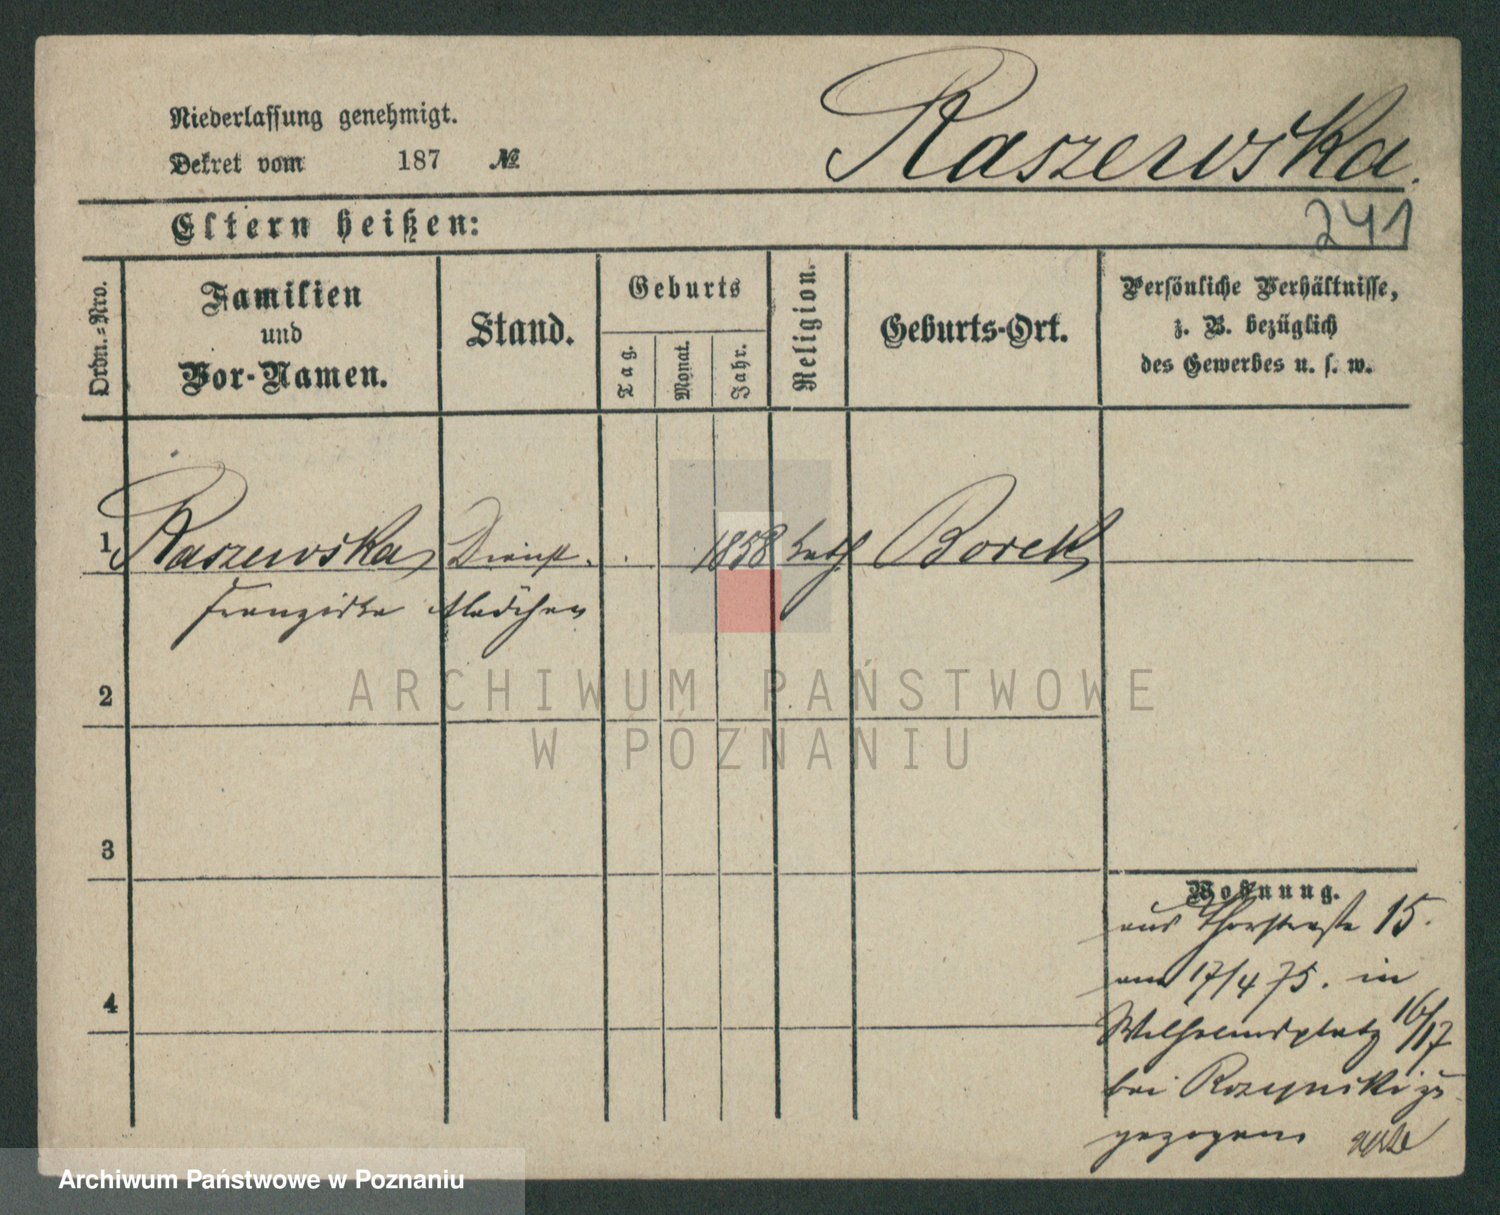 Niederlassung genehmigt.
Dekret vom 187 №
Raszewska.
241
Eltern heißen:
Ordn.=Nro.
Familien
und
Vor-Namen.
Stand.
Geburts
Tag.
Monat.
Jahr.
Religion.
Geburts-Ort.
Persönliche Verhältnisse,
z. B. bezüglich
des Gewerbes u. s. w.
1 Raszewska Dienst. 1858 kath Borek
Franziska Mädchen
2
3
4
ARCHIWUM PAŃSTWOWE
W POZNANIU
Wohnung.
aus Thorstraße 15.
am 17/4 75. in
Wilhelmsplatz 16/17
bei zu
gezogen
Archiwum Państwowe w Poznaniu